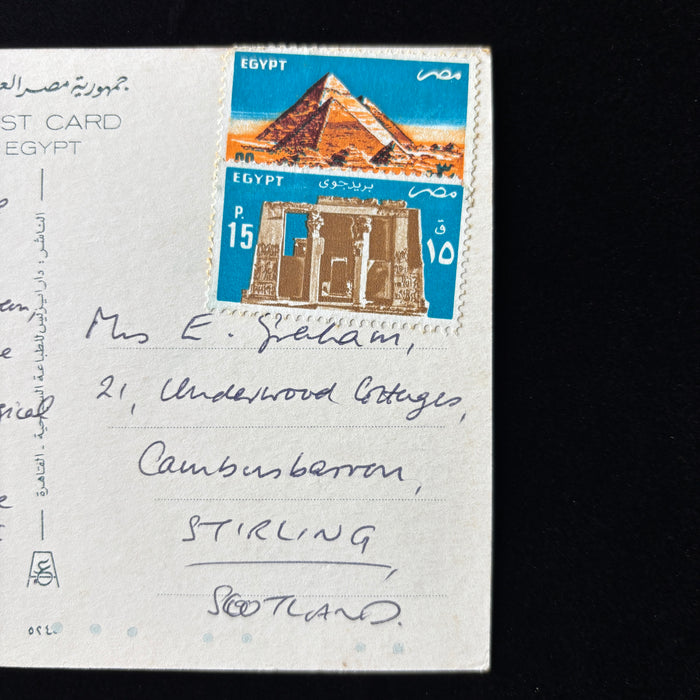 جمهورية مصر الع
ST CARD
EGYPT
EGYPT
مصر
EGYPT
بريد جوى
مصر
P.
15
ق
١٥
Mrs E. Graham,
21, Underwood Cottages,
Cambusbarron,
STIRLING,
SCOTLAND.
gical
الناشر : دار
للطباعة
القاهرة
٥٢٤٠